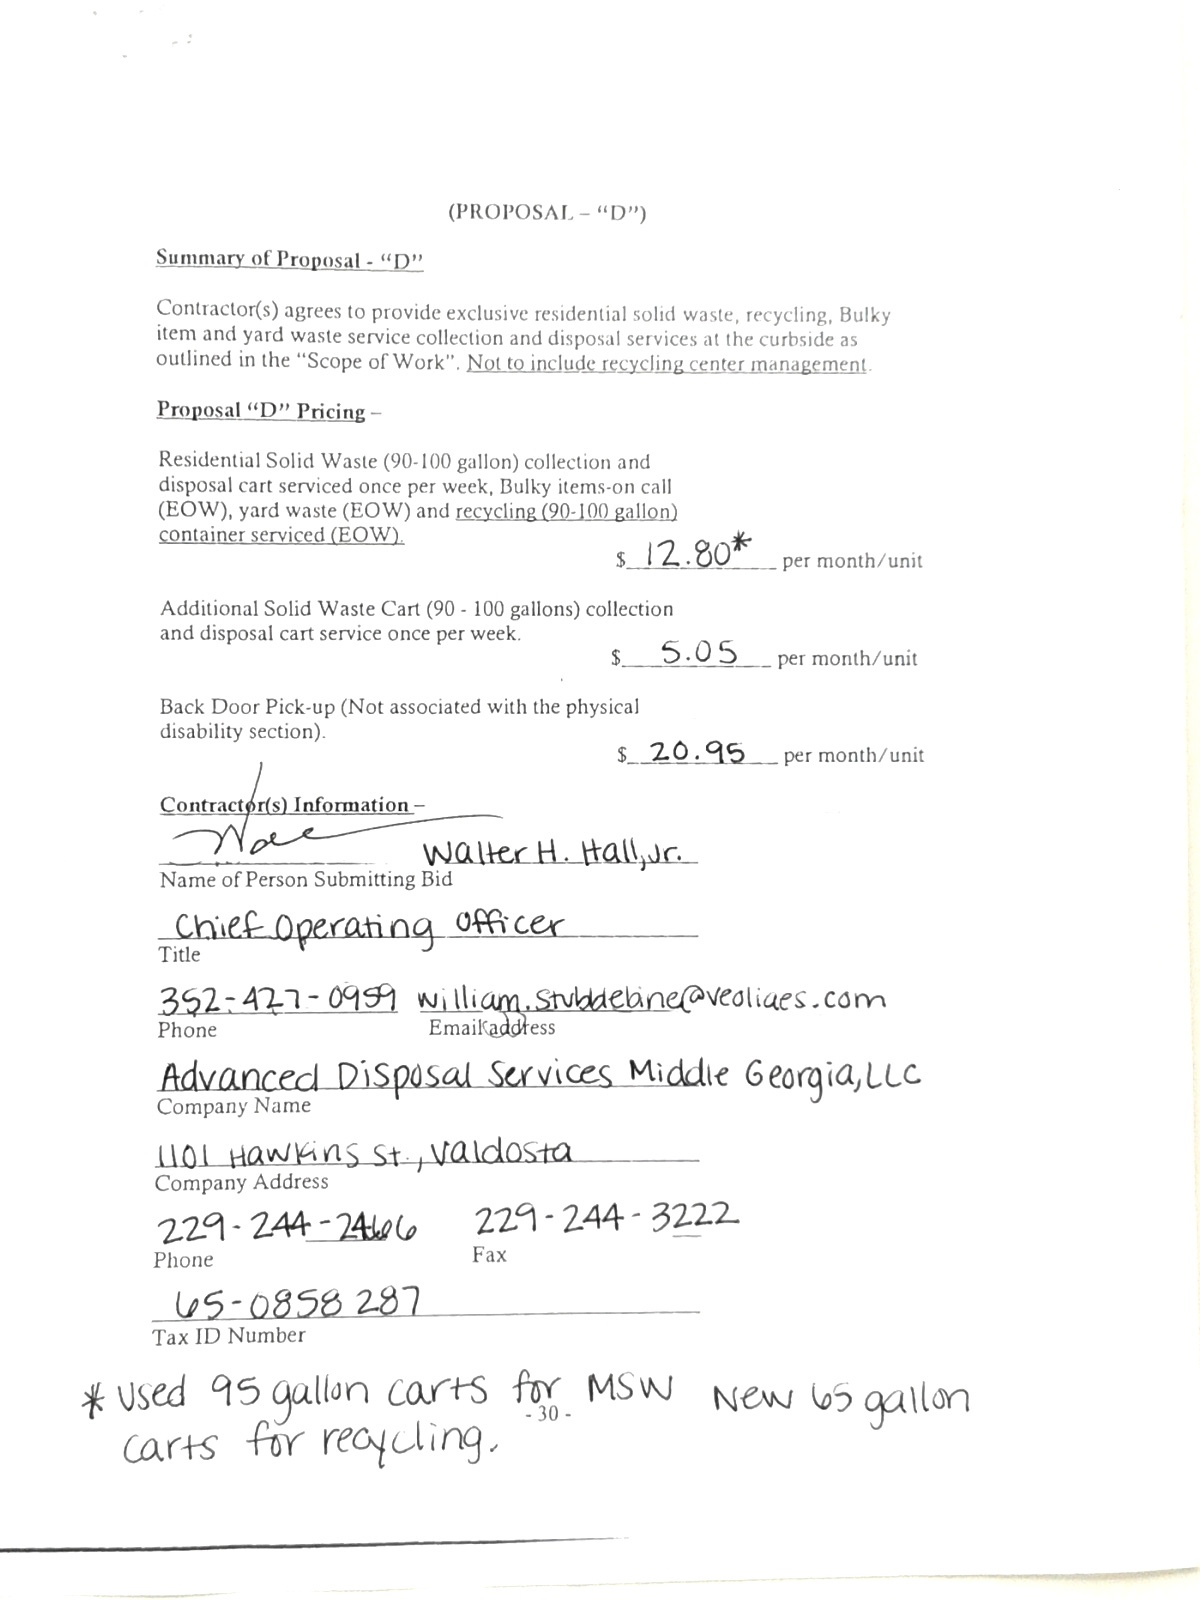 (PROPOSAL – “D”)
Summary of Proposal - “D”
Contractor(s) agrees to provide exclusive residential solid waste, recycling, Bulky
item and yard waste service collection and disposal services at the curbside as
outlined in the “Scope of Work”. Not to include recycling center management.
Proposal “D” Pricing –
Residential Solid Waste (90-100 gallon) collection and
disposal cart serviced once per week, Bulky items-on call
(EOW), yard waste (EOW) and recycling (90-100 gallon)
container serviced (EOW).
$ 12.80* per month/unit
Additional Solid Waste Cart (90 - 100 gallons) collection
and disposal cart service once per week.
$ 5.05 per month/unit
Back Door Pick-up (Not associated with the physical
disability section).
$ 20.95 per month/unit
Contractor(s) Information –
Walter H. Hall, Jr.
Name of Person Submitting Bid
Chief Operating Officer
Title
352-427-0959 william.stubbdebine@veoliaes.com
Phone Email address
Advanced Disposal Services Middle Georgia, LLC
Company Name
1101 Hawkins St., Valdosta
Company Address
229-244-2466 229-244-3222
Phone Fax
65-0858287
Tax ID Number
* Used 95 gallon carts for MSW New 65 gallon
- 30 -
carts for recycling.